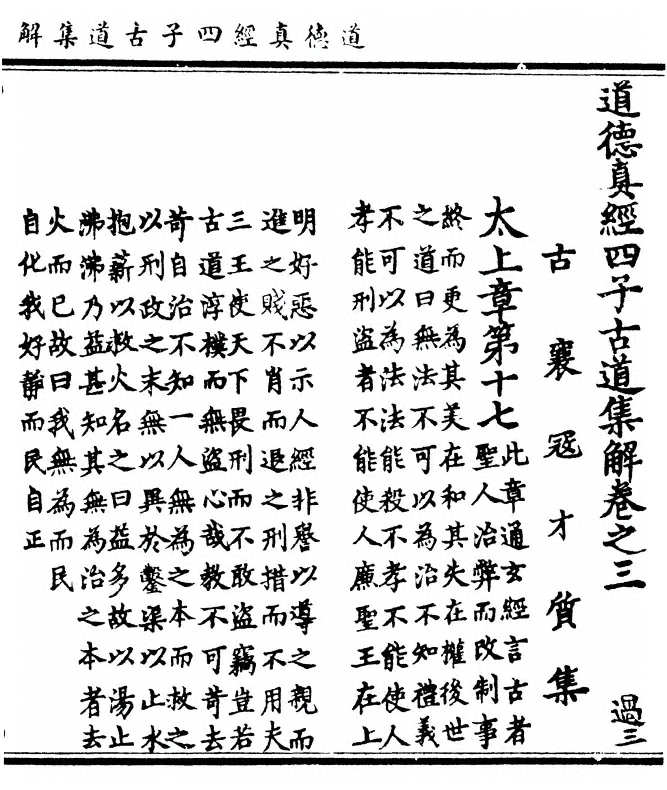 道德真經四子古道集解
道德真經四子古道集解卷之三　過三
古襄寇才質集
太上章第十七　此章通玄經言古者
聖人治弊而改制事
終而更為其美在和其失在權後世
之道曰無法不可以為治不知禮義
不可以為法法能殺不孝不能使人
孝能刑盜者不能使人廉聖王在上
明好惡以示人經非譽以導之親而
進之賤不肖而退之刑措而不用夫
三王使天下畏刑而不敢盜竊豈若
古道淳樸而無盜心哉教不可苛去
苛自治不知一人無為之本而救之
以刑政之末無以異於鑿渠以止水
抱薪以救火名之曰益多故以湯止
沸沸乃益甚知其無為治之本者去
火而已故曰我無為而民
自化我好靜而民自正